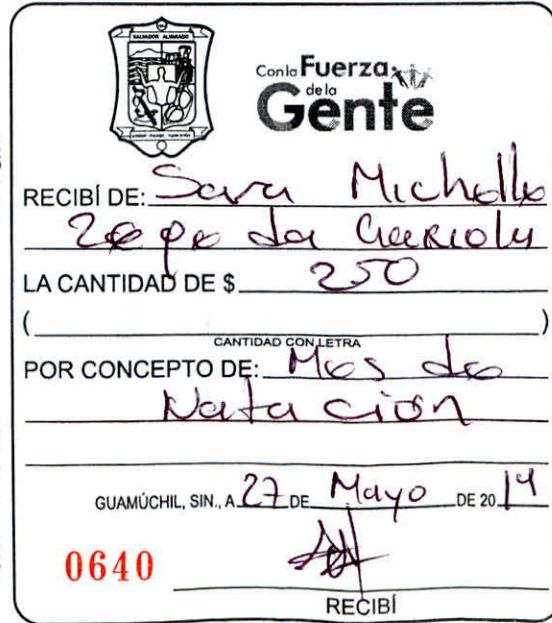 SALVADOR ALVARADO
Con la Fuerza
de la
Gente
RECIBÍ DE: Sara Michelle
Zepeda
LA CANTIDAD DE $ 250
( )
CANTIDAD CON LETRA
POR CONCEPTO DE: Mes de
Natación
GUAMÚCHIL, SIN., A 27 DE Mayo DE 20 19
0640
RECIBÍ